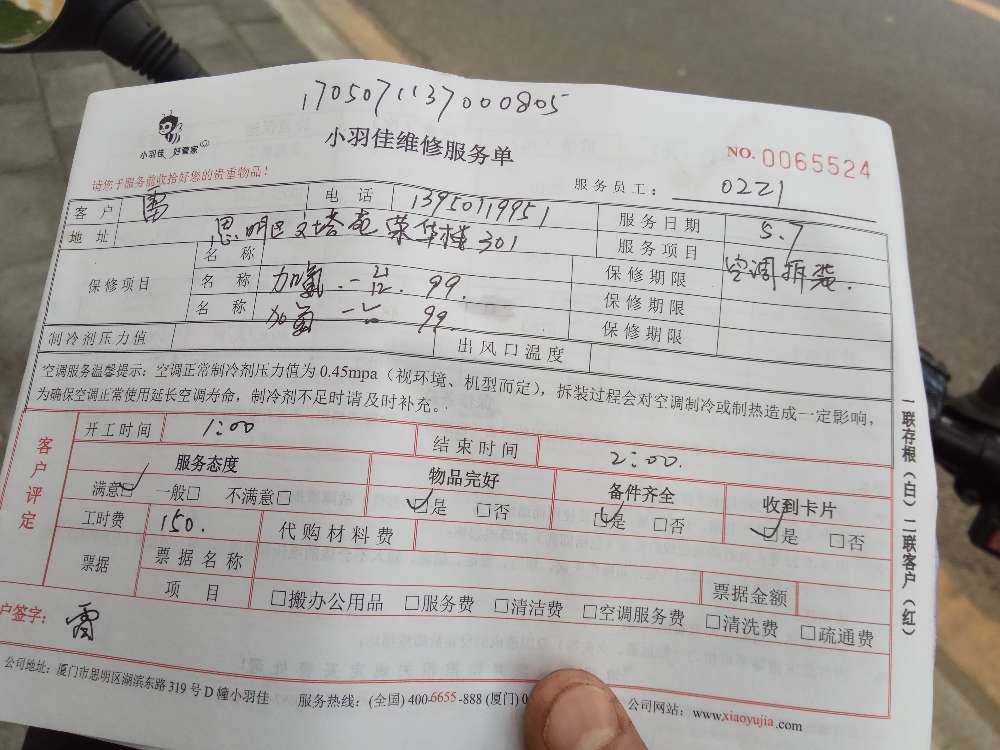 1705071137000805
小羽佳 好管家
小羽佳维修服务单
NO. 0065524
请您于服务前收拾好您的贵重物品!
服务员工: 0221
客户 雷 电话 13950119951 服务日期 5.7
地址 思明区文塔苑荣华楼301 服务项目 空调拆装.
保修项目 名称 保修期限
名称 加氟. 一台. 99. 保修期限
名称 加氟 一台 99. 保修期限
制冷剂压力值 出风口温度
空调服务温馨提示:空调正常制冷剂压力值为 0.45mpa(视环境、机型而定),拆装过程会对空调制冷或制热造成一定影响,
为确保空调正常使用延长空调寿命,制冷剂不足时请及时补充。
客户评定
开工时间 1:00 结束时间 2:00.
服务态度 物品完好 备件齐全 收到卡片
满意☑ 一般□ 不满意□ ☑是 □否 ☑是 □否 ☑是 □否
工时费 150. 代购材料费
票据 票据名称 票据金额
项目 □搬办公用品 □服务费 □清洁费 □空调服务费 □清洗费 □疏通费
户签字: 雷
公司地址:厦门市思明区湖滨东路 319 号 D 幢小羽佳 服务热线:(全国) 400-6655-888 (厦门) 0 公司网站:www.xiaoyujia.com
一联存根(白) 二联客户(红)